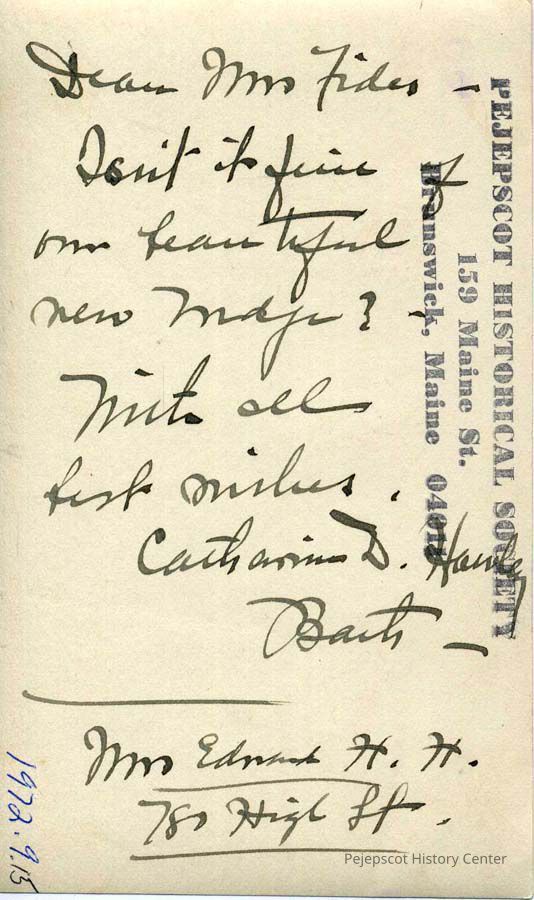 Dear Mrs Fides -
Isn't it fine of
our beautiful
new bridge?
With all
best wishes.
Catharine D. Hawley
Bath -
Mrs Edward H. H.
780 High St.
PEJEPSCOT HISTORICAL SOCIETY
159 Maine St.
Brunswick, Maine 04011
1972.9.15
Pejepscot History Center